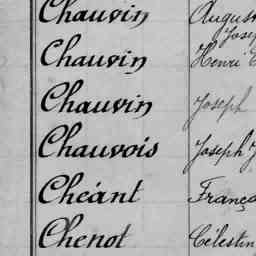 Chauvin Augus
Josep
Chauvin Henri
Chauvin Joseph
Chauvois Joseph J
Chéant França
Chenot Célestin